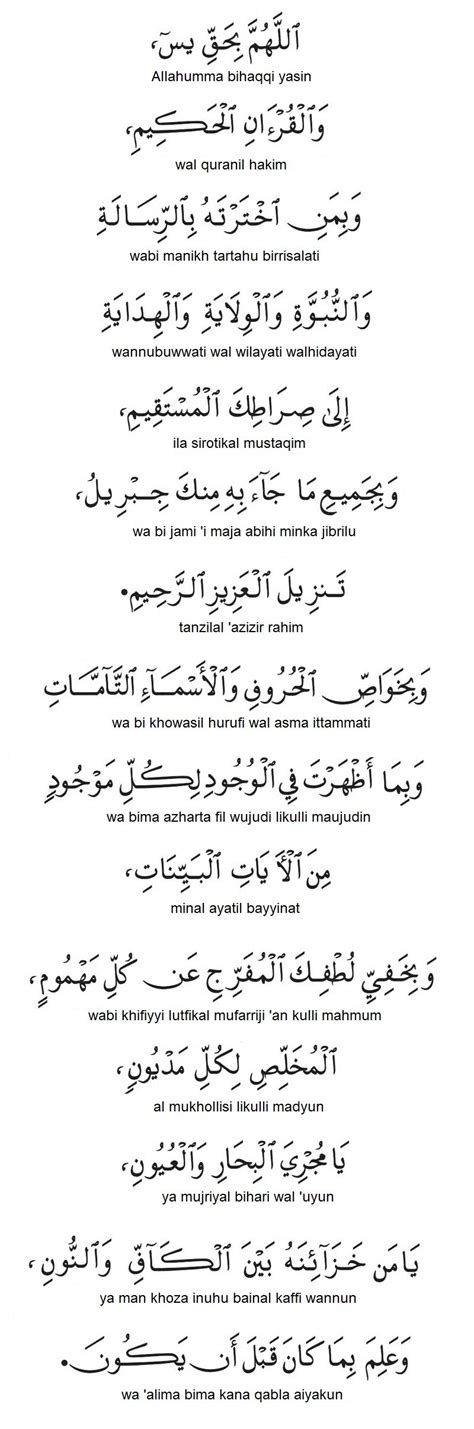 اَللّٰهُمَّ بِحَقِّ يسٓ،
Allahumma bihaqqi yasin
وَٱلْقُرْءَانِ ٱلْحَكِيمِ،
wal quranil hakim
وَبِمَنِ ٱخْتَرْتَهُ بِٱلرِّسَالَةِ
wabi manikh tartahu birrisalati
وَٱلنُّبُوَّةِ وَٱلْوِلَايَةِ وَٱلْهِدَايَةِ
wannubuwwati wal wilayati walhidayati
إِلَىٰ صِرَاطِكَ ٱلْمُسْتَقِيمِ،
ila sirotikal mustaqim
وَبِجَمِيعِ مَا جَآءَ بِهِ مِنكَ جِبْرِيلُ،
wa bi jami 'i maja abihi minka jibrilu
تَنزِيلَ ٱلْعَزِيزِ ٱلرَّحِيمِ.
tanzilal 'azizir rahim
وَبِخَوَاصِّ ٱلْحُرُوفِ وَٱلْأَسْمَآءِ ٱلتَّآمَّاتِ
wa bi khowasil hurufi wal asma ittammati
وَبِمَا أَظْهَرْتَ فِي ٱلْوُجُودِ لِكُلِّ مَوْجُودٍ
wa bima azharta fil wujudi likulli maujudin
مِنَ ٱلْأَيَاتِ ٱلْبَيِّنَاتِ،
minal ayatil bayyinat
وَبِخَفِيِّ لُطْفِكَ ٱلْمُفَرِّجِ عَن كُلِّ مَهْمُومٍ،
wabi khifiyyi lutfikal mufarriji 'an kulli mahmum
ٱلْمُخَلِّصِ لِكُلِّ مَدْيُونٍ،
al mukhollisi likulli madyun
يَا مُجْرِيَ ٱلْبِحَارِ وَٱلْعُيُونِ،
ya mujriyal bihari wal 'uyun
يَا مَن خَزَآئِنَهُ بَيْنَ ٱلْكَآفِّ وَٱلنُّونِ،
ya man khoza inuhu bainal kaffi wannun
وَعَلِمَ بِمَا كَانَ قَبْلَ أَن يَكُونَ.
wa 'alima bima kana qabla aiyakun